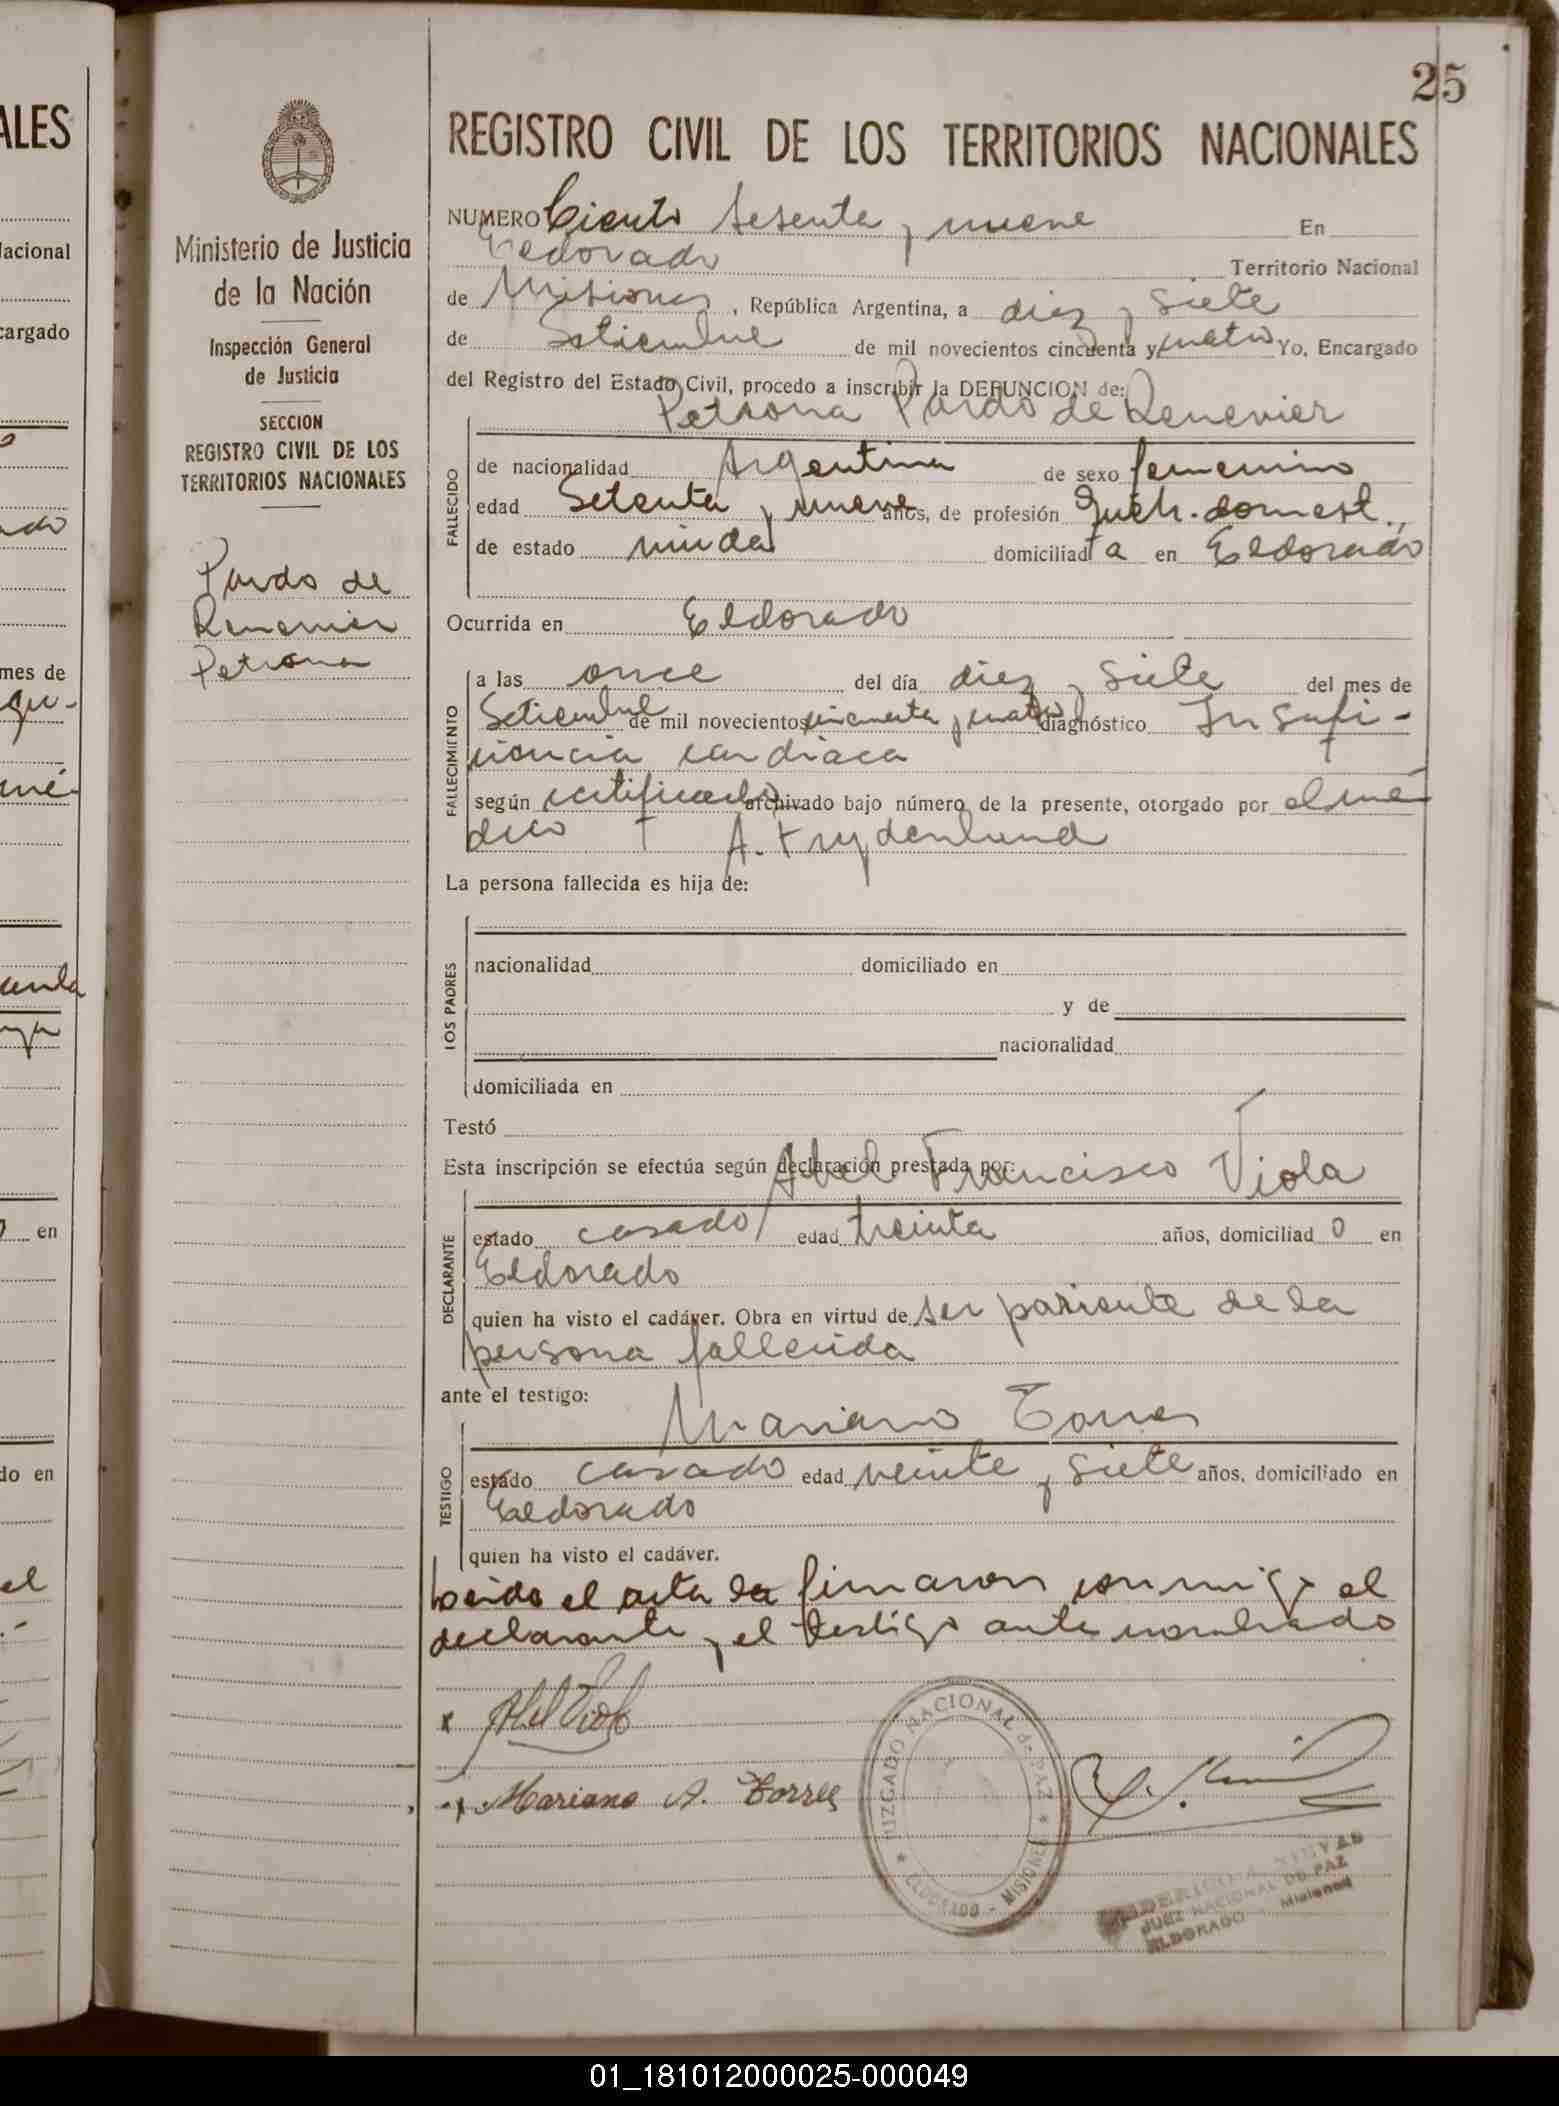 25
REGISTRO CIVIL DE LOS TERRITORIOS NACIONALES
NUMERO Ciento sesenta y nueve En
Eldorado Territorio Nacional
de Misiones, República Argentina, a diez y siete
de Setiembre de mil novecientos cincuenta y cuatro Yo, Encargado
del Registro del Estado Civil, procedo a inscribir la DEFUNCION de:
Petrona Pardo de Renevier
FALLECIDO
de nacionalidad Argentina de sexo femenino
edad Setenta y nueve años, de profesión queh. domest.,
de estado viuda domiciliad a en Eldorado
Ocurrida en Eldorado
FALLECIMIENTO
a las once del día diez y siete del mes de
Setiembre de mil novecientos cincuenta y cuatro diagnóstico Insufi-
ciencia cardiaca
según certificado archivado bajo número de la presente, otorgado por el mé-
dico A. Frydenlund
La persona fallecida es hija de:
LOS PADRES
nacionalidad domiciliado en
y de
nacionalidad
domiciliada en
Testó
Esta inscripción se efectúa según declaración prestada por:
Abel Francisco Viola
DECLARANTE
estado casado edad treinta años, domiciliad o en
Eldorado
quien ha visto el cadáver. Obra en virtud de ser pariente de la
persona fallecida
ante el testigo:
Mariano Torres
TESTIGO
estado casado edad veinte y siete años, domiciliado en
Eldorado
quien ha visto el cadáver.
Leida el acta la firmaron conmigo el
declarante y el testigo ante nombrado
x Abel Viola
x Mariano A. Torres
JUZGADO NACIONAL de PAZ
ELDORADO - MISIONES
JUEZ NACIONAL DE PAZ
ELDORADO - Misiones
Ministerio de Justicia
de la Nación
Inspección General
de Justicia
SECCION
REGISTRO CIVIL DE LOS
TERRITORIOS NACIONALES
Pardo de
Renevier
Petrona
ALES
Nacional
cargado
mes de
en
do en
01_181012000025-000049